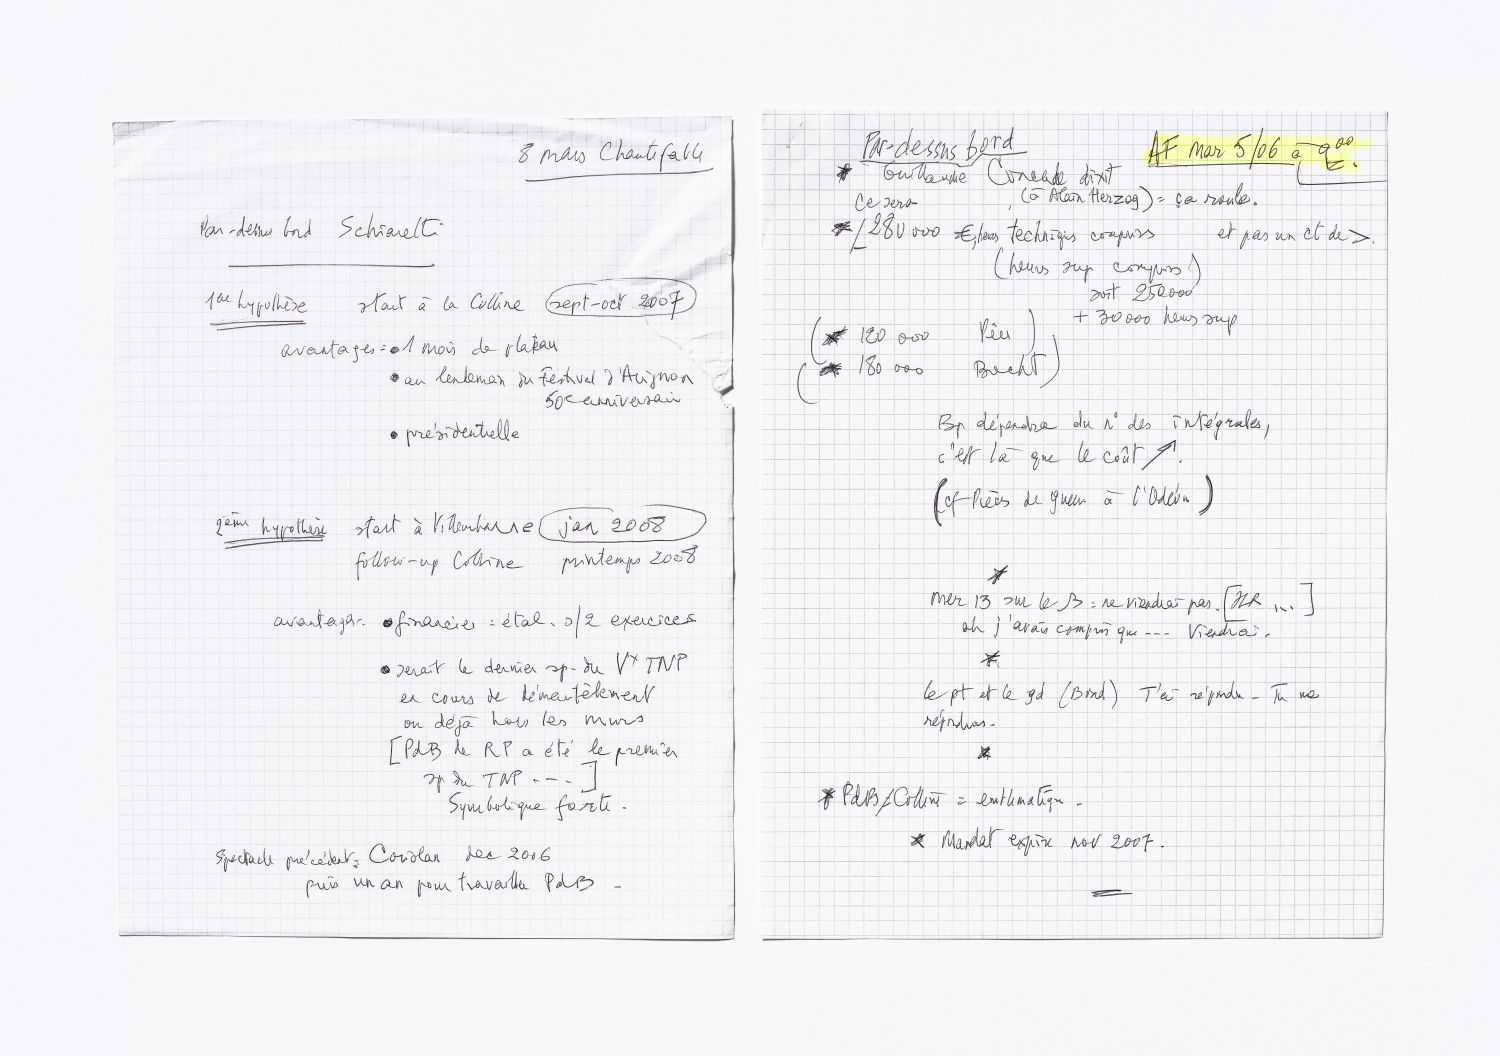 8 mars Chantefable
Par-dessus bord Schiaretti
1ère hypothèse start à la Colline sept-oct 2007
avantages = • 1 mois de plateau
• au lendemain du Festival d'Avignon
50e anniversaire
• présidentielle
2ème hypothèse start à Villeurbanne jan 2008
follow-up Colline printemps 2008
avantages • financier = étal. s/2 exercices
• serait le dernier sp. du Vx TNP
en cours de démantèlement
ou déjà hors les murs
[PdB de RP a été le premier
sp du TNP ----]
Symbolique forte.
Spectacle précédent: Coriolan dec 2006
puis un an pour travailler PdB -
Par-dessus bord AF mar 5/06 à 9 00
* Guillaume dixit
Ce sera (à Alain Herzog) = ça roule.
* [280 000 €, heures techniques comprises et pas un ct de >.
(heures sup comprises)
soit 250000
+ 30000 heures sup
(* 120 000 )
(* 180 000 )
Bp dépendra du n° des intégrales,
c'est là que le coût ↗.
(cf Pièces de guerre à l'Odéon)
*
Mer 13 sur le B = ne viendrai pas. [ ... ]
oh j'avais compris que --- Viendrai.
*
le pt et le gd (Bond) T'ai répondu - Tu me
répondras.
*
* PdB/Colline = emblématique.
* Mandat expire nov 2007.